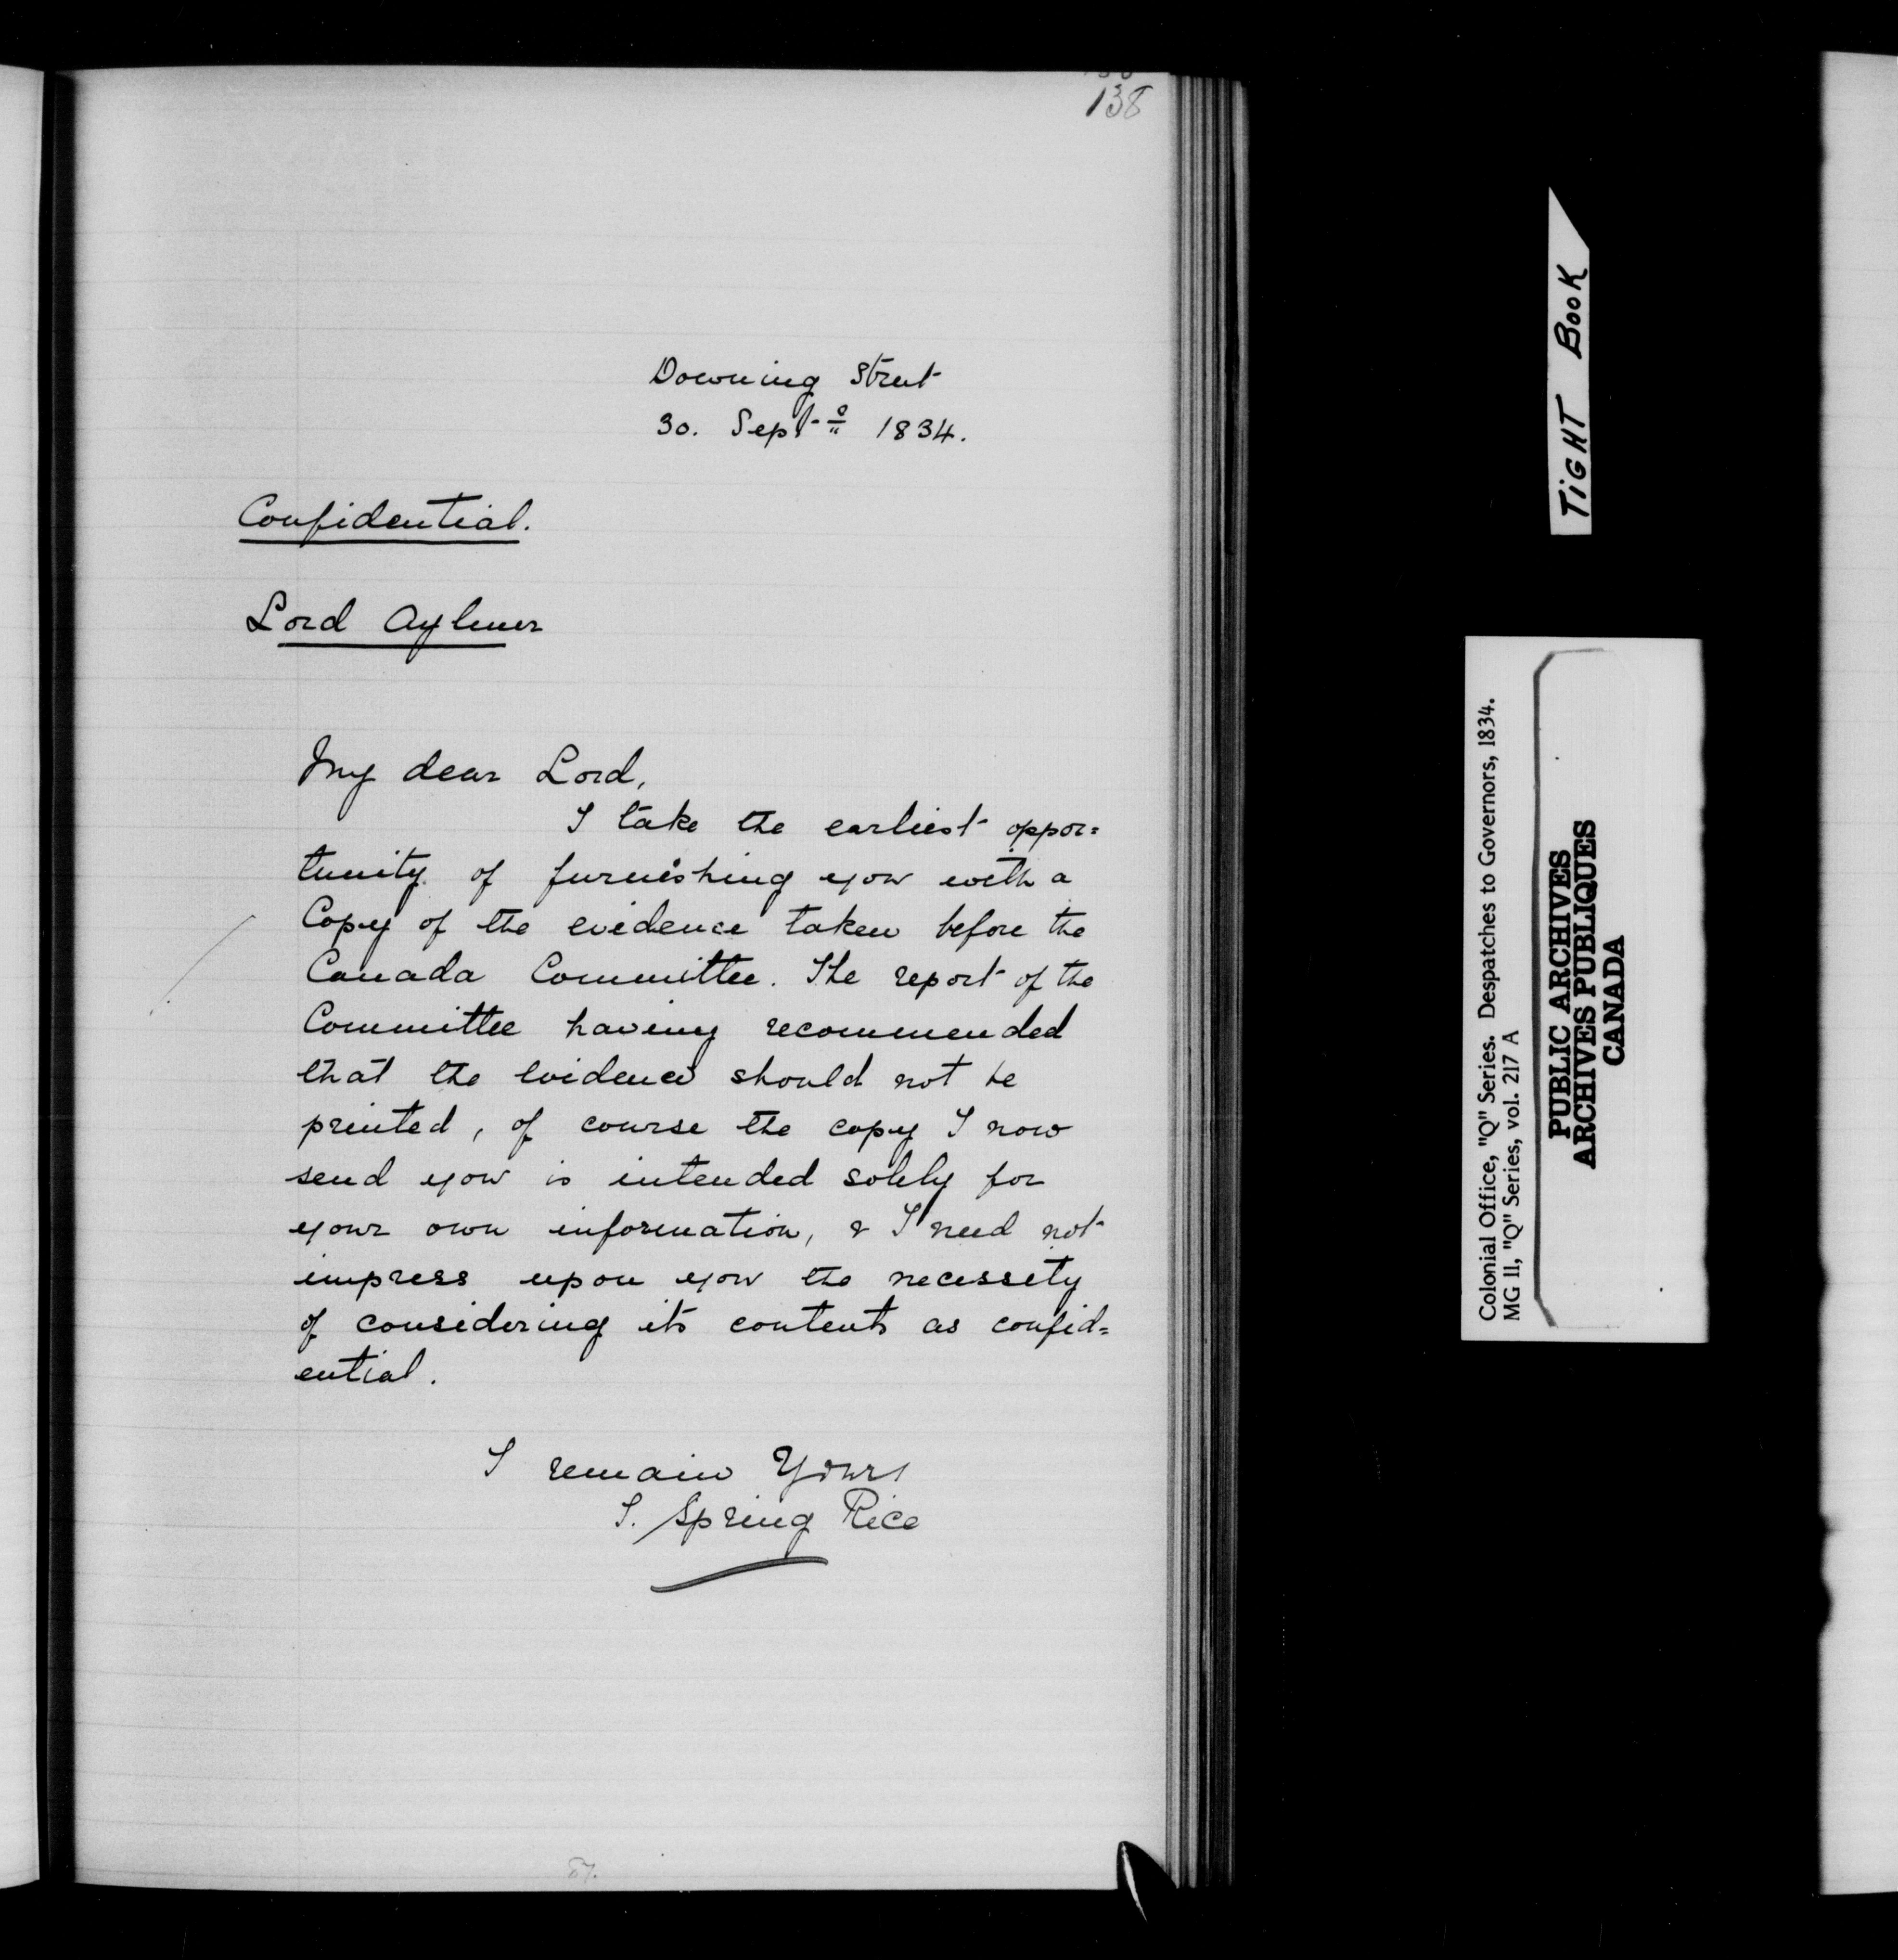 138
Downing Street
30. Sept. 1834.
Confidential.
Lord Aylmer
My dear Lord,
I take the earliest oppor=
tunity of furnishing you with a
Copy of the evidence taken before the
Canada Committee. The report of the
Committee having recommended
that the evidence should not be
printed, of course the copy I now
send you is intended solely for
your own information, & I need not
impress upon you the necessity
of considering its contents as confid=
ential.
I remain Yours
T. Spring Rice
TiGHT BOOK
Colonial Office, "Q" Series. Despatches to Governors, 1834.
MG 11, "Q" Series, vol. 217 A
PUBLIC ARCHIVES
ARCHIVES PUBLIQUES
CANADA